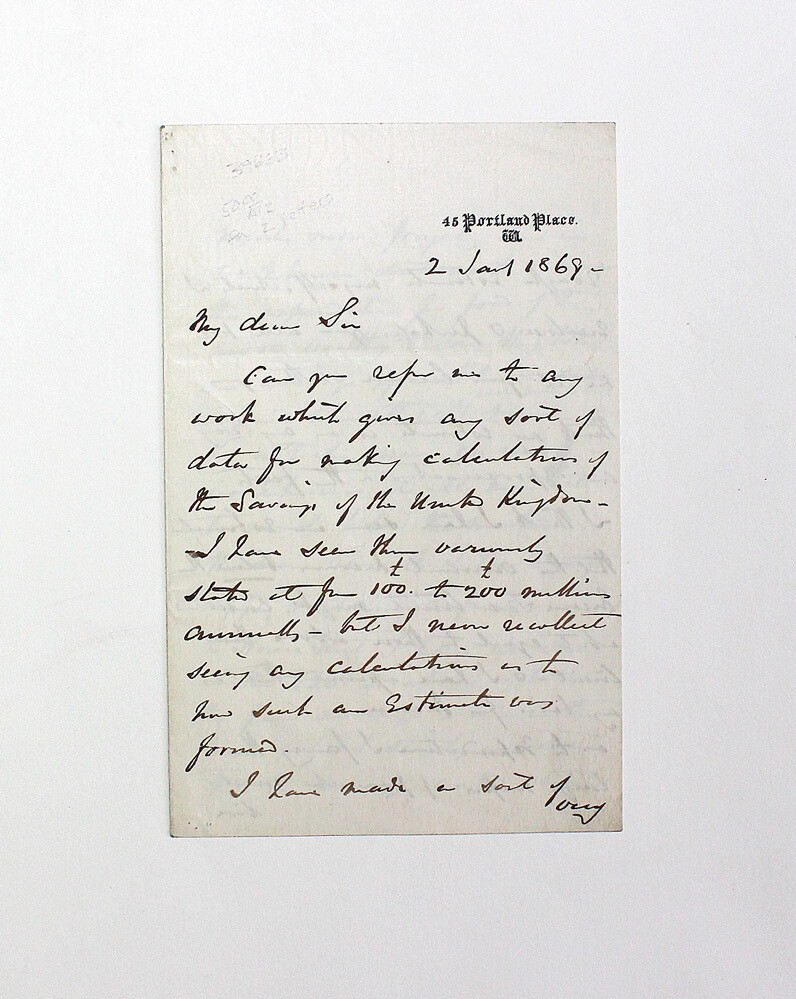 45 Portland Place.
W.
2 Jany 1869 -
My dear Sir
Can you refer me to any
work which gives any sort of
data for making calculations of
the Savings of the United Kingdom -
- I have seen them variously
stated at from 100. to 200 millions
£ £
annually - but I never recollect
seeing any calculations as to
how such an Estimate was
formed.
I have made a sort of
very